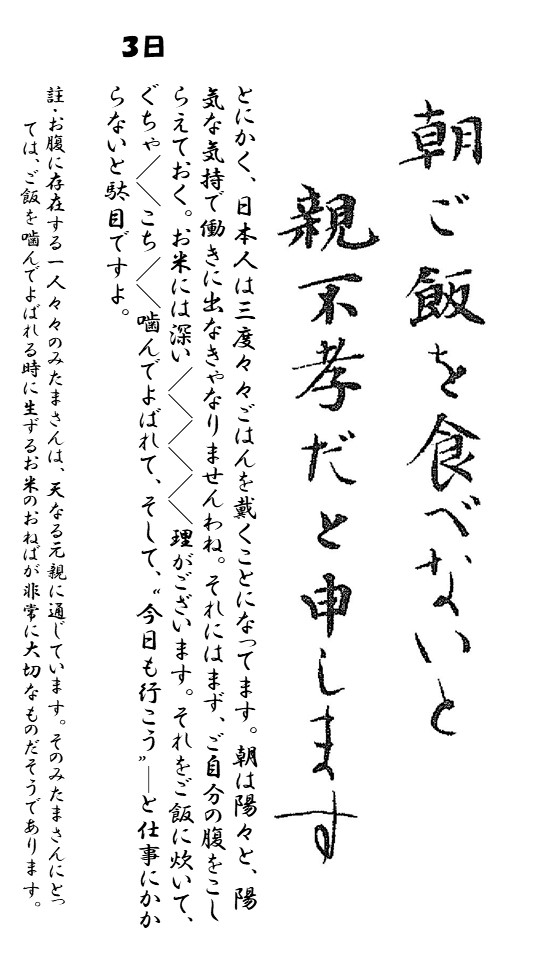 3日
朝ご飯を食べないと
親不孝だと申します
とにかく、日本人は三度々々ごはんを戴くことになってます。朝は陽々と、陽
気な気持で働きに出なきゃなりませんわね。それにはまず、ご自分の腹をこし
らえておく。お米には深い／＼／＼／＼理がございます。それをご飯に炊いて、
ぐちゃ／＼こち／＼噛んでよばれて、そして、“今日も行こう”――と仕事にかか
らないと駄目ですよ。
註・お腹に存在する一人々々のみたまさんは、天なる元親に通じています。そのみたまさんにとっ
ては、ご飯を噛んでよばれる時に生ずるお米のおねばが非常に大切なものだそうであります。